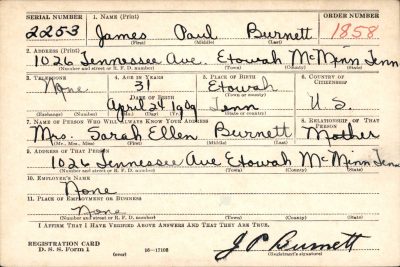 SERIAL NUMBER 1. NAME (Print) ORDER NUMBER
2253 James Paul Burnett 1858
(First) (Middle) (Last)
2. ADDRESS (Print)
1026 Tennessee Ave. Etowah McMinn Tenn
(Number and street or R. F. D. number) (Town) (County) (State)
3. TELEPHONE 4. AGE IN YEARS 5. PLACE OF BIRTH 6. COUNTRY OF CITIZENSHIP
None 31 Etowah
DATE OF BIRTH (Town or county)
April 24 1909 Tenn U.S.
(Exchange) (Number) (Mo.) (Day) (Yr.) (State or country)
7. NAME OF PERSON WHO WILL ALWAYS KNOW YOUR ADDRESS 8. RELATIONSHIP OF THAT PERSON
Mrs. Sarah Ellen Burnett Mother
(Mr., Mrs., Miss) (First) (Middle) (Last)
9. ADDRESS OF THAT PERSON
1026 Tennessee Ave Etowah McMinn Tenn
(Number and street or R. F. D. number) (Town) (County) (State)
10. EMPLOYER'S NAME
None
11. PLACE OF EMPLOYMENT OR BUSINESS
None
(Number and street or R. F. D. number) (Town) (County) (State)
I AFFIRM THAT I HAVE VERIFIED ABOVE ANSWERS AND THAT THEY ARE TRUE.
REGISTRATION CARD
D. S. S. Form 1 (over) 16—17105 J P Burnett
(Registrant's signature)